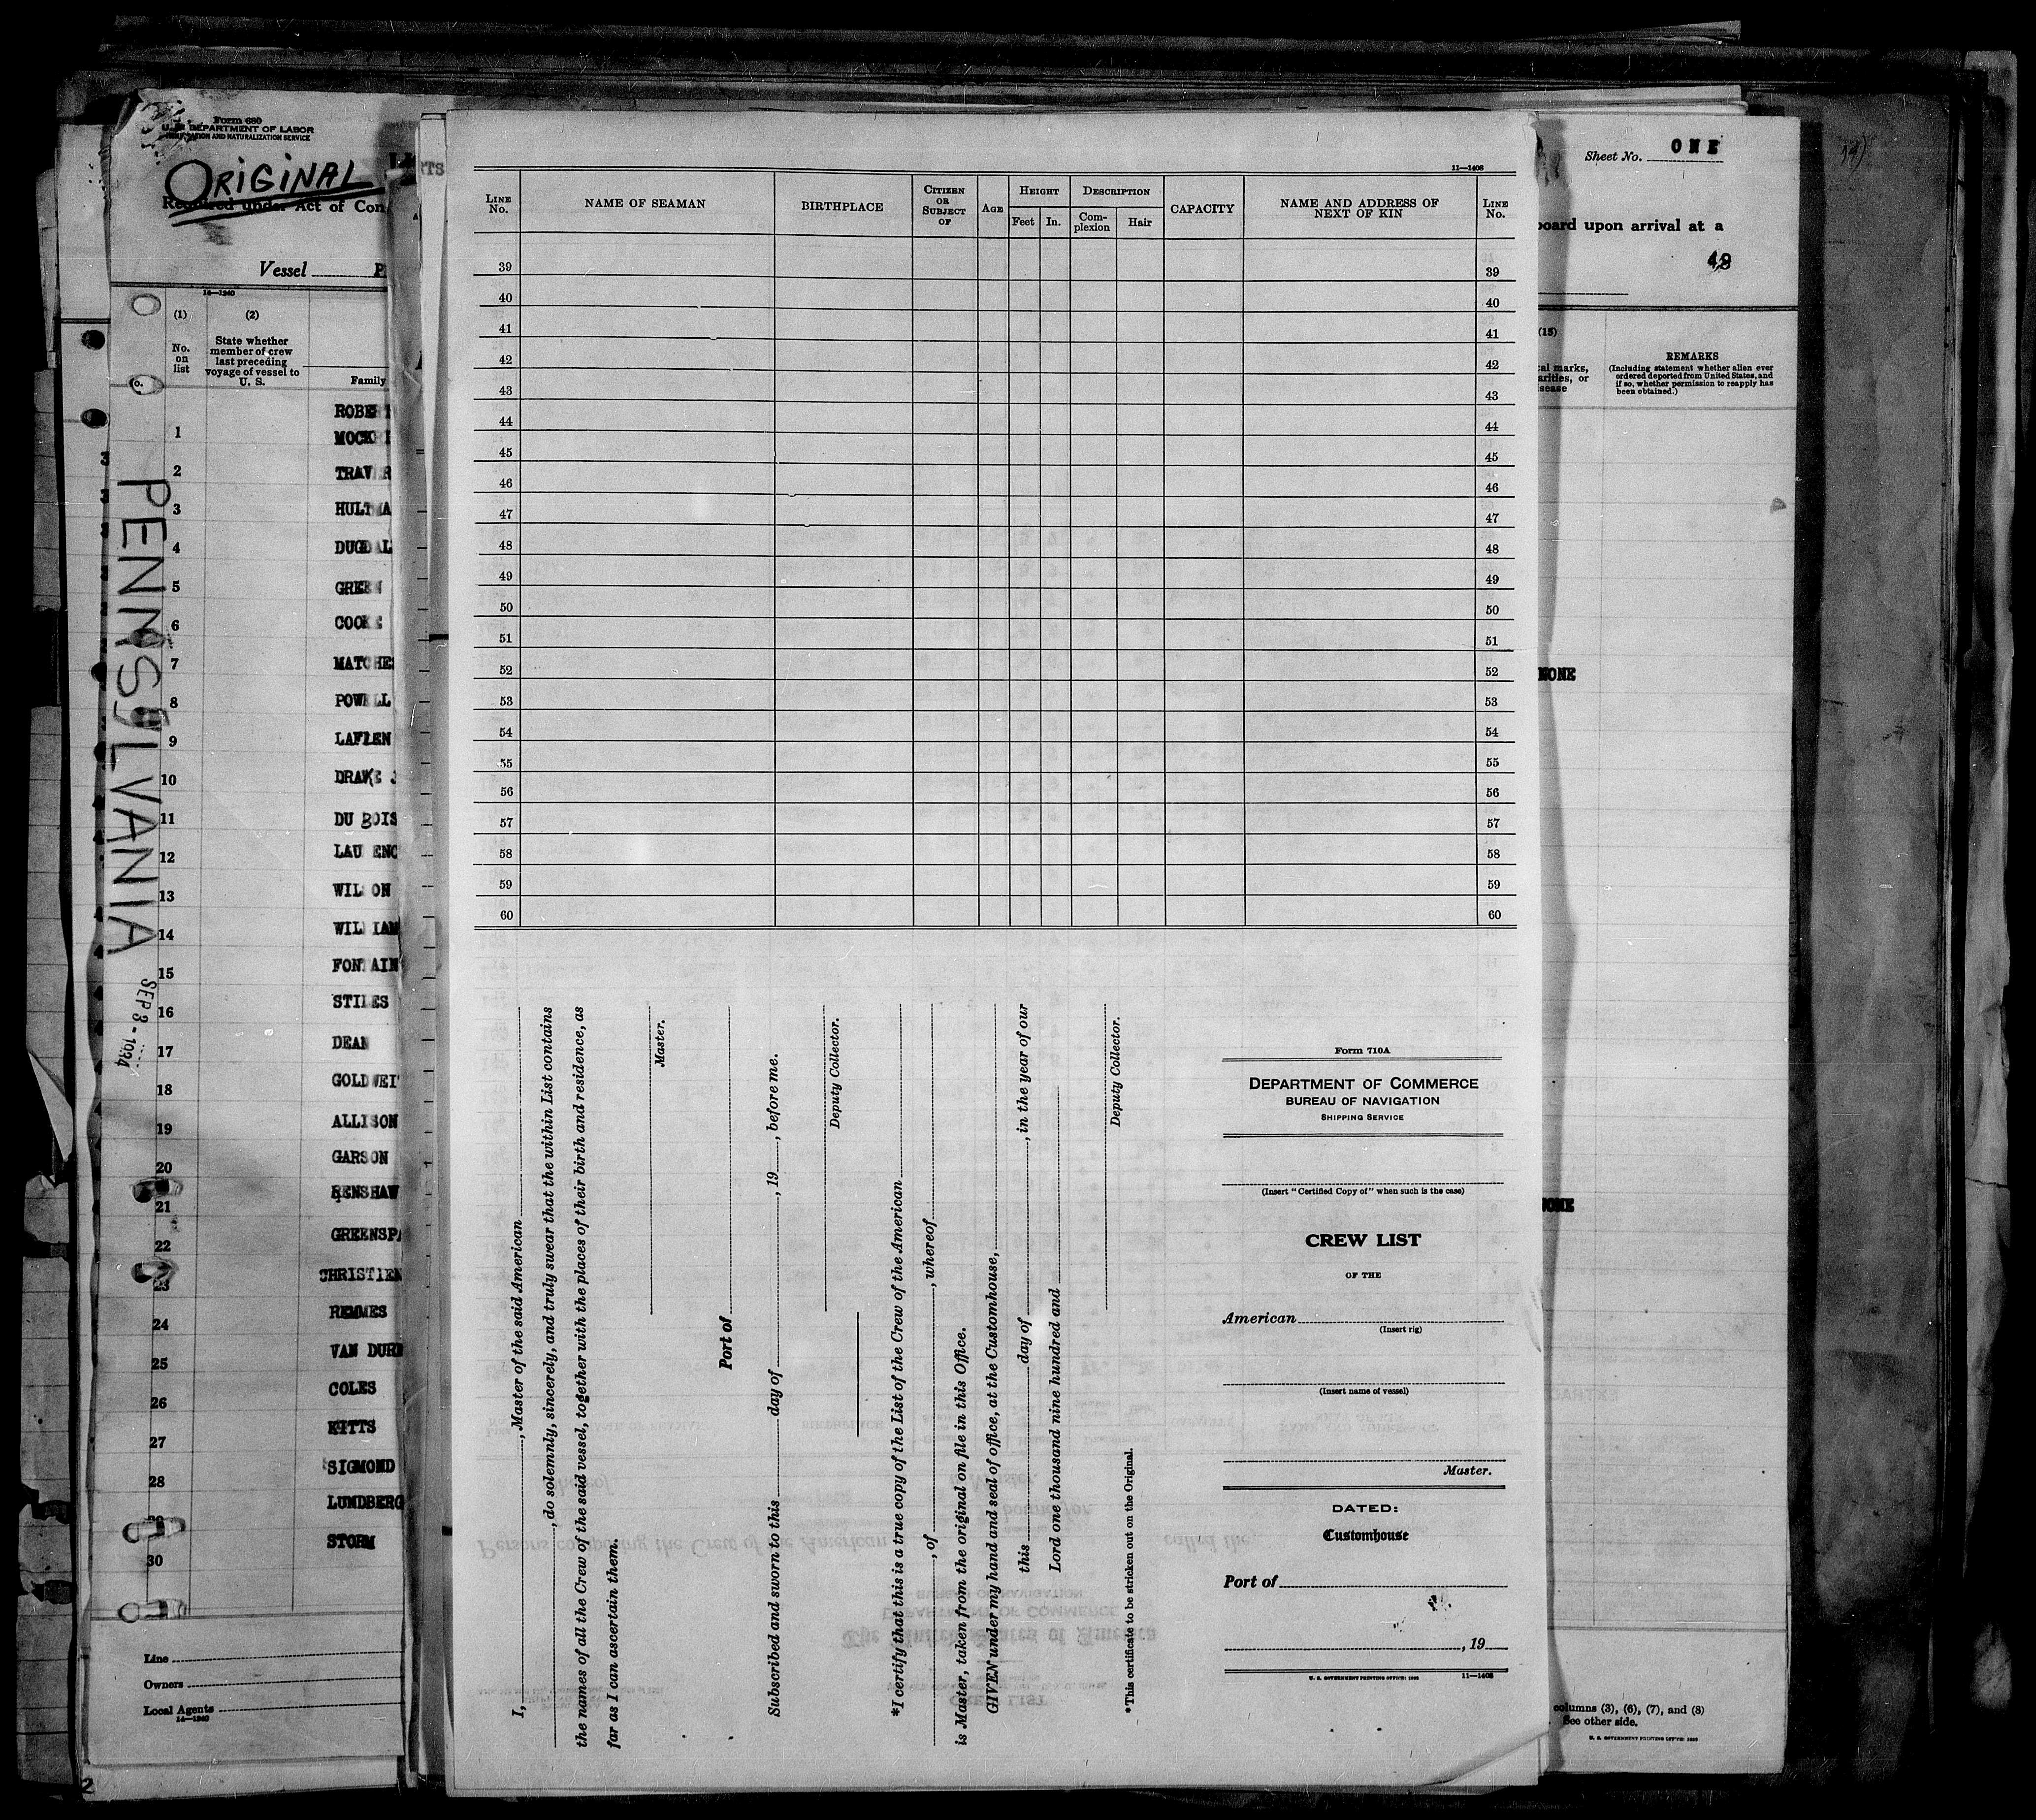 Form 680
U. S. DEPARTMENT OF LABOR
IMMIGRATION AND NATURALIZATION SERVICE
ORIGINAL
Required under Act of Con
Vessel
14—1240
(1)
(2)
No.
on
list
State whether
member of crew
last preceding
voyage of vessel to
U. S.
Family
ROBERT
1 MOCKRI
2 TRAVER
3 HULTMA
4 DUGDAL
5 GREEN
6 COOKE
7 MATCHE
8 POWELL
9 LAFLEN
10 DRAKE
11 DU BOIS
12 LAURENC
13 WILSON
14 WILLIAM
15 FONTAIN
16 STILES
17 DEAN
18 GOLDWEI
19 ALLISON
20 GARSON
21 RENSHAW
22 GREENSPA
23 CHRISTIEN
24 REMMES
25 VAN DURE
26 COLES
27 KITTS
28 SIGMOND
29 LUNDBERG
30 STORM
Line
Owners
Local Agents
14—1240
PENNSYLVANIA
SEP 3 - 1934
2
11—1408
LINE No.
NAME OF SEAMAN
BIRTHPLACE
CITIZEN OR SUBJECT OF
AGE
HEIGHT
Feet
In.
DESCRIPTION
Com-
plexion
Hair
CAPACITY
NAME AND ADDRESS OF
NEXT OF KIN
LINE No.
39 39
40 40
41 41
42 42
43 43
44 44
45 45
46 46
47 47
48 48
49 49
50 50
51 51
52 52
53 53
54 54
55 55
56 56
57 57
58 58
59 59
60 60
I, , Master of the said American
, do solemnly, sincerely, and truly swear that the within List contains
the names of all the Crew of the said vessel, together with the places of their birth and residence, as
far as I can ascertain them.
Master.
Port of
Subscribed and sworn to this day of , 19 , before me.
Deputy Collector.
*I certify that this is a true copy of the List of the Crew of the American
, of , whereof
is Master, taken from the original on file in this Office.
GIVEN under my hand and seal of office, at the Customhouse,
this day of , in the year of our
Lord one thousand nine hundred and
Deputy Collector.
*This certificate to be stricken out on the Original.
Form 710A
DEPARTMENT OF COMMERCE
BUREAU OF NAVIGATION
SHIPPING SERVICE
(Insert "Certified Copy of" when such is the case)
CREW LIST
OF THE
American
(Insert rig)
(Insert name of vessel)
Master.
DATED:
Customhouse
Port of
, 19
U. S. GOVERNMENT PRINTING OFFICE: 1932 11—1408
Sheet No. ONE
board upon arrival at a
(15)
cal marks,
arities, or
sease
REMARKS
(Including statement whether alien ever
ordered deported from United States, and
if so, whether permission to reapply has
been obtained.)
NONE
NONE
columns (3), (6), (7), and (8)
See other side.